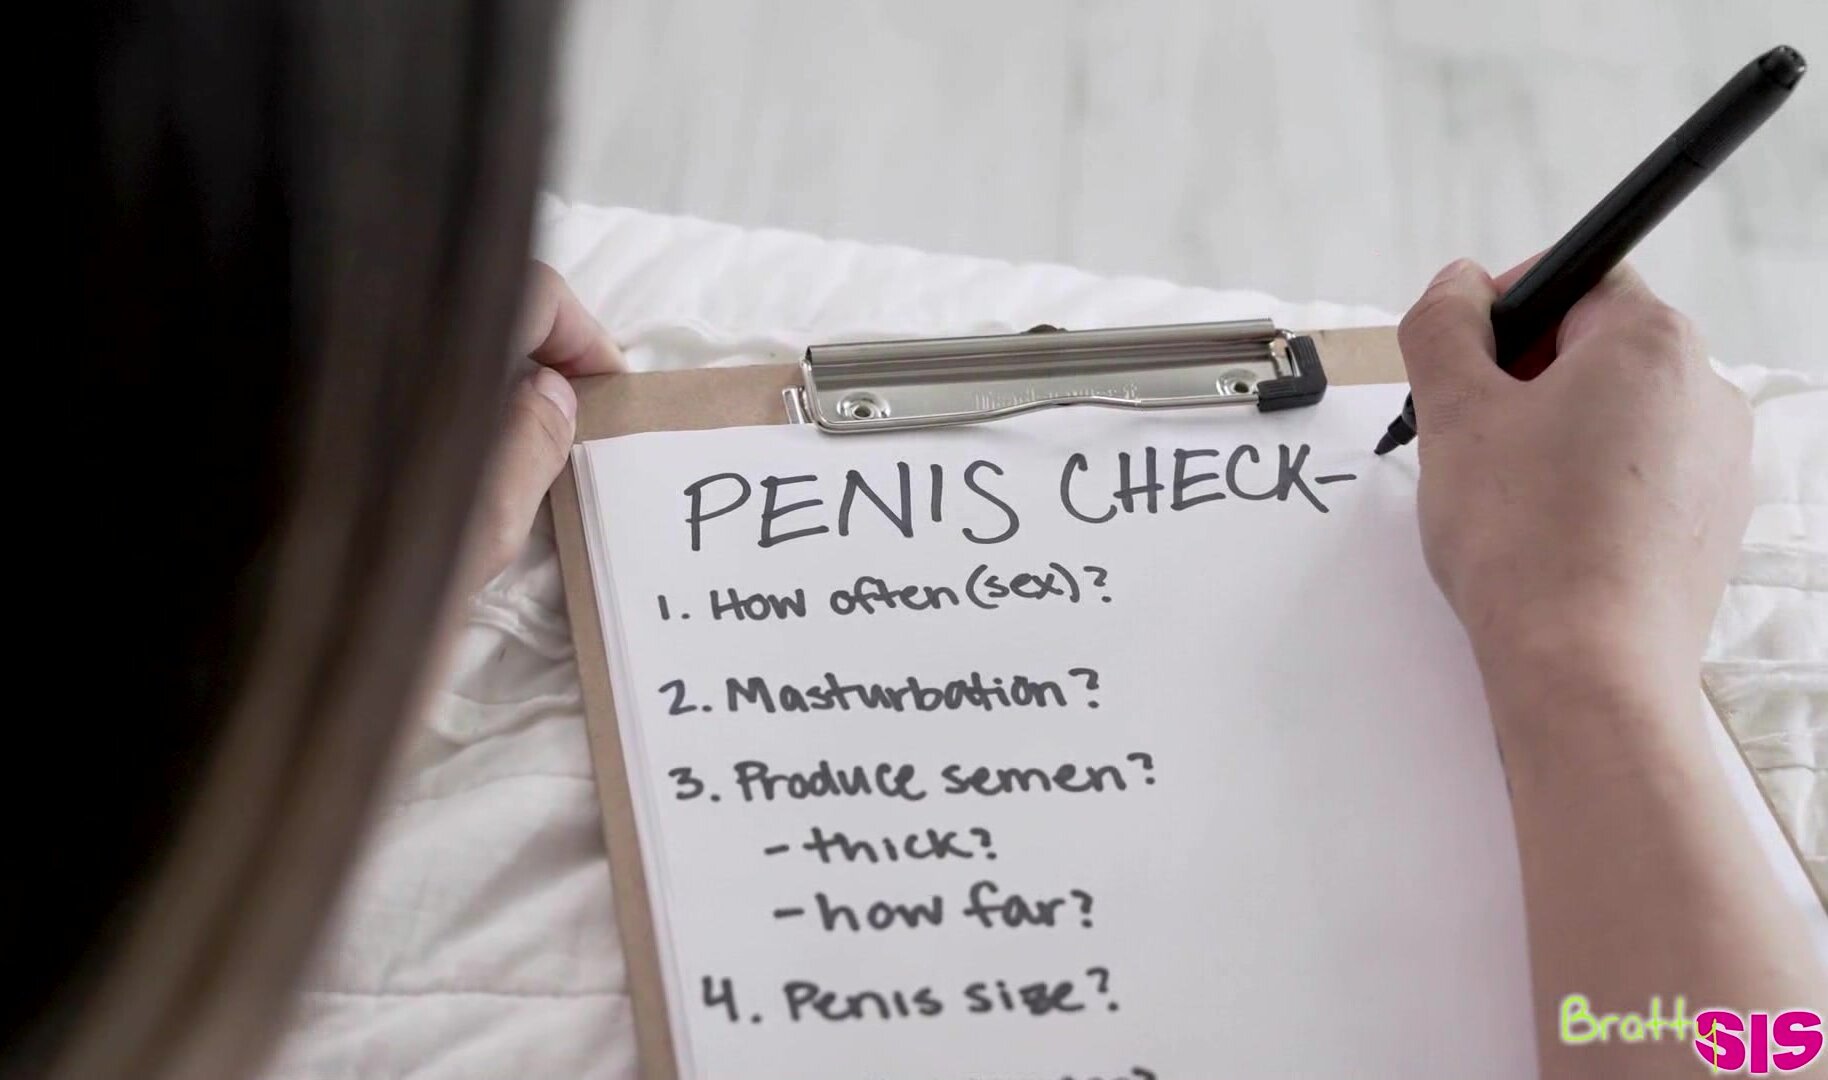 PENIS CHECK-
1. How often (sex)?
2. Masturbation?
3. Produce semen?
- thick?
- how far?
4. Penis size?
Bratty SIS